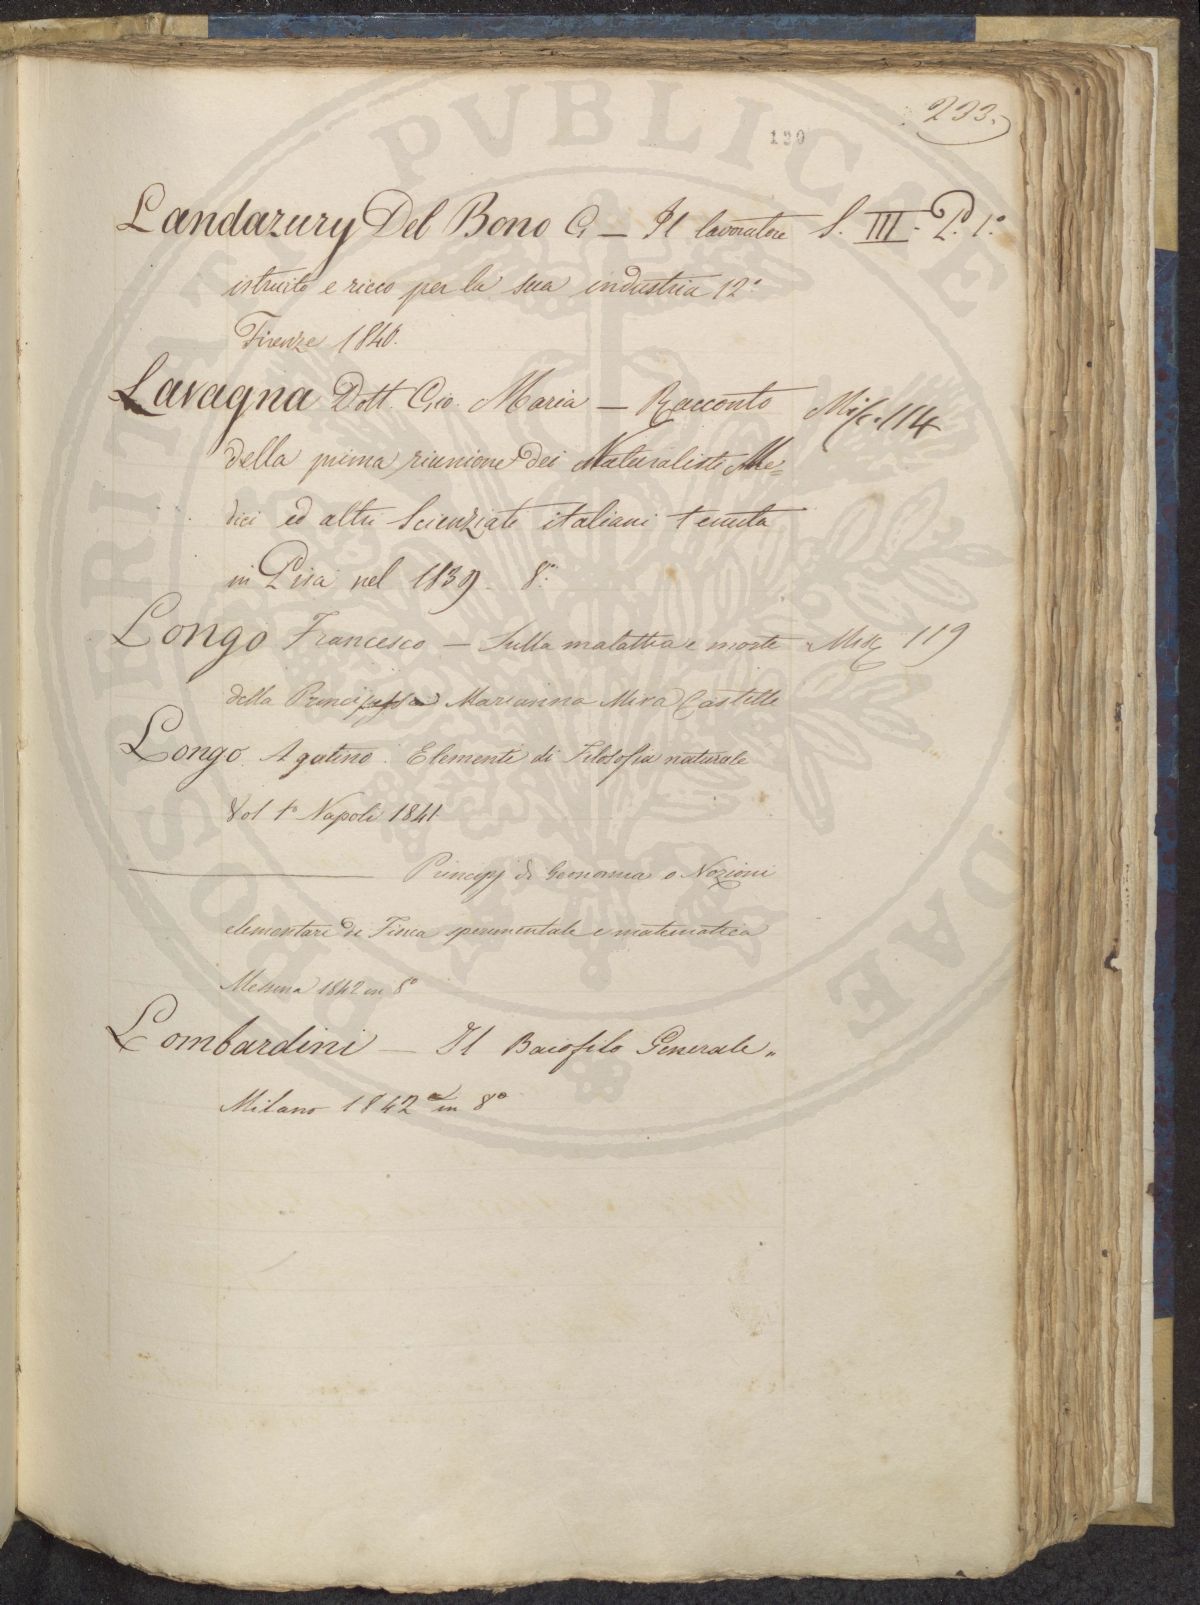 233.
130
Landazury Del Bono G — Il lavoratore S. III. P. 1.°
istruito e ricco per la sua industria 12.°
Firenze 1840.
Lavagna Dott. Gio. Maria — Racconto Misc. 114
della prima riunione dei Naturalisti Me=
dici ed altri Scienziati italiani tenuta
in Pisa nel 1839. 8.°
Longo Francesco — Sulla malattia e morte Misc 119
della Principessa Marianna Mira Castelli
Longo Agatino. Elementi di Filosofia naturale
Vol 1° Napoli 1841
Principj di Geonomia o Nozioni
elementari di Fisica sperimentale e matematica
Messina 1842 in 8°
Lombardini — Il Baiofilo Generale„
Milano 1842 in 8°
PROSPERITATI PVBLICAE